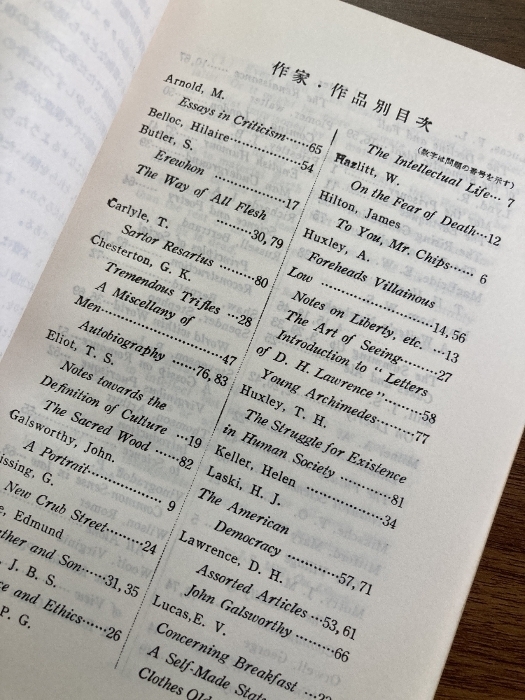 作家・作品別目次
(数字は問題の番号を示す)
Arnold, M.
Essays in Criticism……65
Belloc, Hilaire……………54
Butler, S.
Erewhon ……………17
The Way of All Flesh
………30, 79
Carlyle, T.
Sartor Resarius ………80
Chesterton, G. K.
Tremendous Trifles …28
A Miscellany of
Men……………………47
Autobiography ……76, 83
Eliot, T. S.
Notes towards the
Definition of Culture …19
The Sacred Wood ……82
Galsworthy, John.
A Portrait……………… 9
issing, G.
New Crub Street………24
e, Edmund
ther and Son……31, 35
, J. B. S.
ce and Ethics……26
P. G.
The Intellectual Life… 7
Hazlitt, W.
On the Fear of Death…12
Hilton, James
To You, Mr. Chips…… 6
Huxley, A.
Foreheads Villainous
Low ………………14, 56
Notes on Liberty, etc. …13
The Art of Seeing………27
Introduction to "Letters
of D. H. Lawrence"………58
Young Archimedes………77
Huxley, T. H.
The Struggle for Existence
in Human Society ………81
Keller, Helen ……………34
Laski, H. J.
The American
Democracy …………57, 71
Lawrence, D. H.
Assorted Articles …53, 61
John Galsworthy ………66
Lucas, E. V.
Concerning Breakfast …
A Self-Made
Clothes